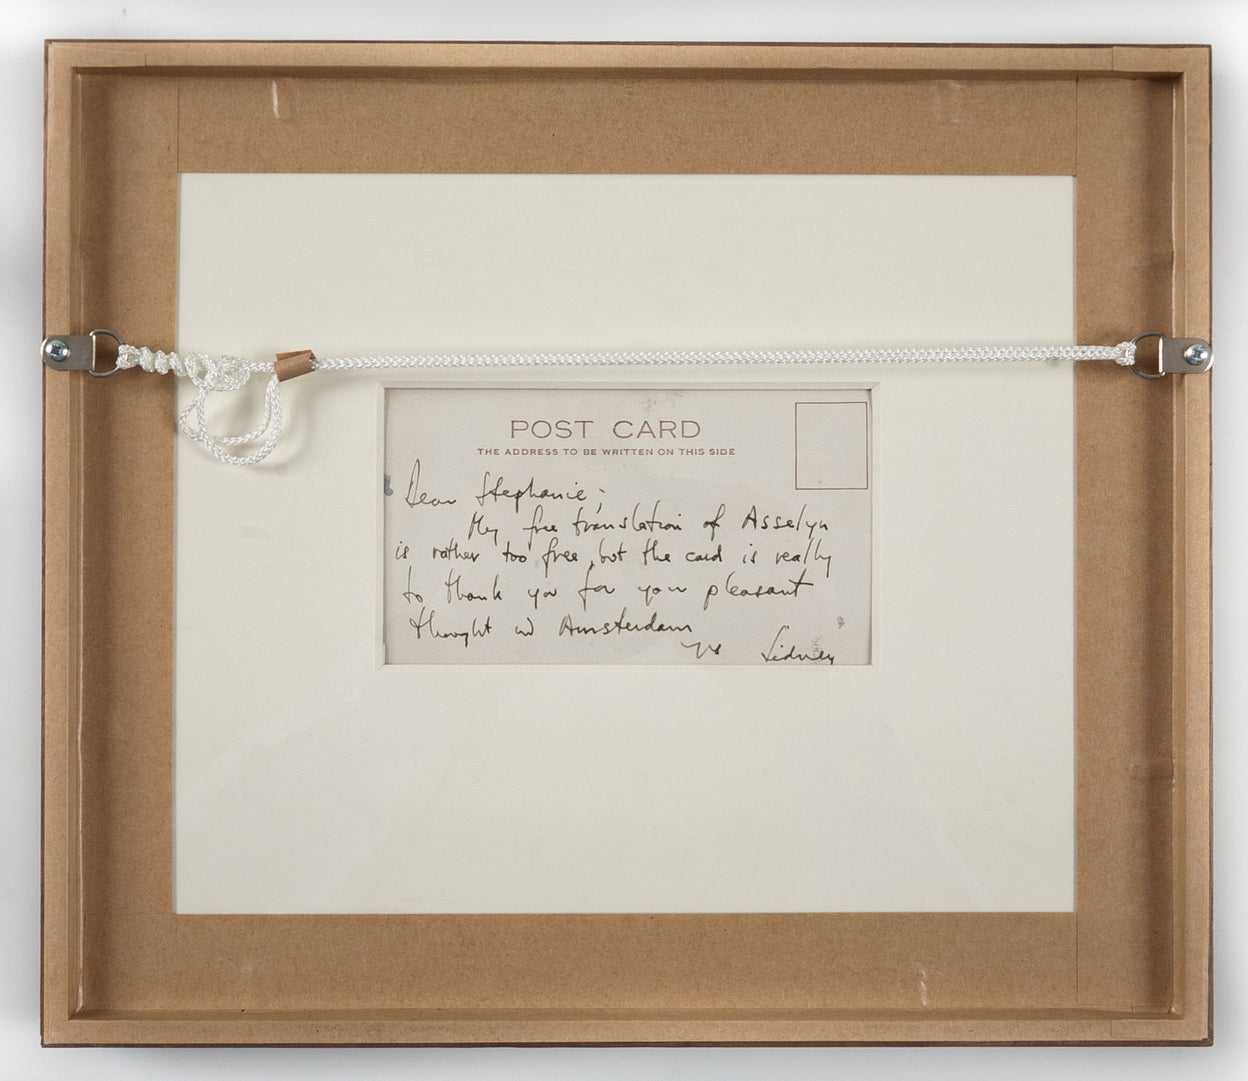 POST CARD
THE ADDRESS TO BE WRITTEN ON THIS SIDE
Dear Stephanie;
My free translation of Asselyn
is rather too free, but the card is really
to thank you for your pleasant
thought in Amsterdam
Sidney